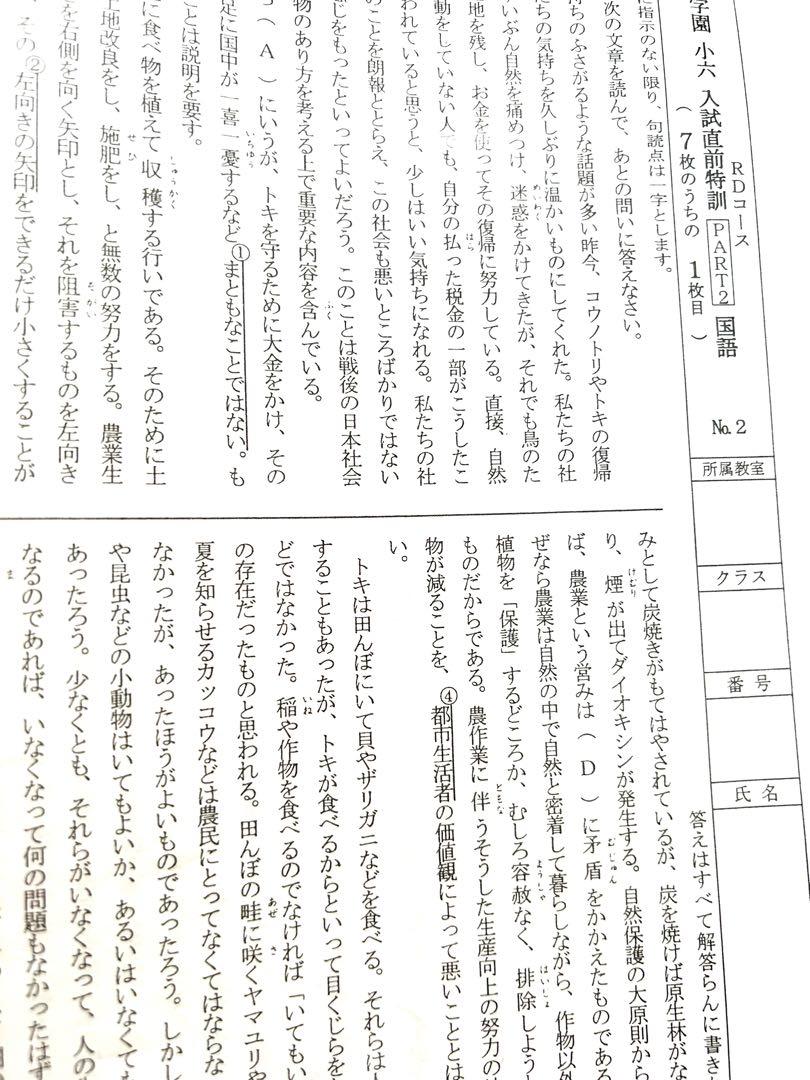 学園 小六 入試直前特訓 PART2 国語 No.2
RDコース
(7枚のうちの 1枚目)
所属教室
クラス
番号
氏名
答えはすべて解答らんに書き
に指示のない限り、句読点は一字とします。
次の文章を読んで、あとの問いに答えなさい。
持ちのふさがるような話題が多い昨今、コウノトリやトキの復帰
たちの気持ちを久しぶりに温かいものにしてくれた。私たちの社
いぶん自然を痛めつけ、迷惑をかけてきたが、それでも鳥のた
地を残し、お金を使ってその復帰に努力している。直接、自然
動をしていない人でも、自分の払った税金の一部がこうしたこ
われていると思うと、少しはいい気持ちになれる。私たちの社
のことを朗報ととらえ、この社会も悪いところばかりではない
じをもったといってよいだろう。このことは戦後の日本社会
物のあり方を考える上で重要な内容を含んでいる。
(A)にいうが、トキを守るために大金をかけ、その
足に国中が一喜一憂するなど①まともなことではない。も
ことは説明を要す。
に食べ物を植えて収穫する行いである。そのために土
土地改良をし、施肥をし、と無数の努力をする。農業生
を右側を向く矢印とし、それを阻害するものを左向き
その②左向きの矢印をできるだけ小さくすることが
みとして炭焼きがもてはやされているが、炭を焼けば原生林がな
り、煙が出てダイオキシンが発生する。自然保護の大原則から
ば、農業という営みは(D)に矛盾をかかえたものである
ぜなら農業は自然の中で自然と密着して暮らしながら、作物以外
植物を「保護」するどころか、むしろ容赦なく、排除しよう
ものだからである。農作業に伴うそうした生産向上の努力の
物が減ることを、④都市生活者の価値観によって悪いこととは
い。
トキは田んぼにいて貝やザリガニなどを食べる。それらは
することもあったが、トキが食べるからといって目くじらを
どではなかった。稲や作物を食べるのでなければ「いてもい
の存在だったものと思われる。田んぼの畦に咲くヤマユリや
夏を知らせるカッコウなどは農民にとってなくてはならな
なかったが、あったほうがよいものであったろう。しかし
や昆虫などの小動物はいてもよいか、あるいはいなくても
あったろう。少なくとも、それらがいなくなって、人の
なるのであれば、いなくなって何の問題もなかったはず